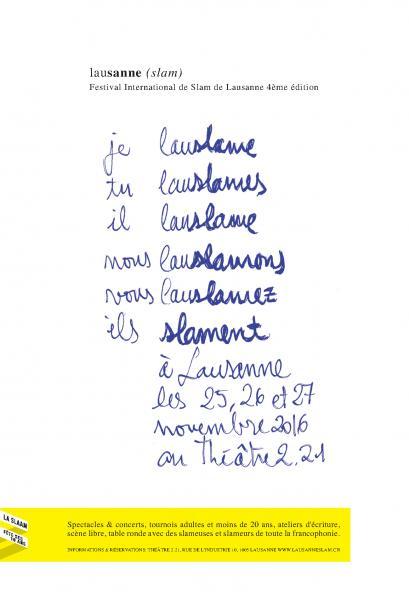 lausanne (slam)
Festival International de Slam de Lausanne 4ème édition
je lauslame
tu lauslames
il lauslame
nous lauslamons
vous lauslamez
ils slament
à Lausanne
les 25, 26 et 27
novembre 2016
au Théâtre 2.21
LA SLAAM
FÊTE SES
10 ANS
Spectacles & concerts, tournois adultes et moins de 20 ans, ateliers d'écriture,
scène libre, table ronde avec des slameuses et slameurs de toute la francophonie.
INFORMATIONS & RÉSERVATIONS: THÉÂTRE 2.21, RUE DE L'INDUSTRIE 10, 1005 LAUSANNE WWW.LAUSANNESLAM.CH